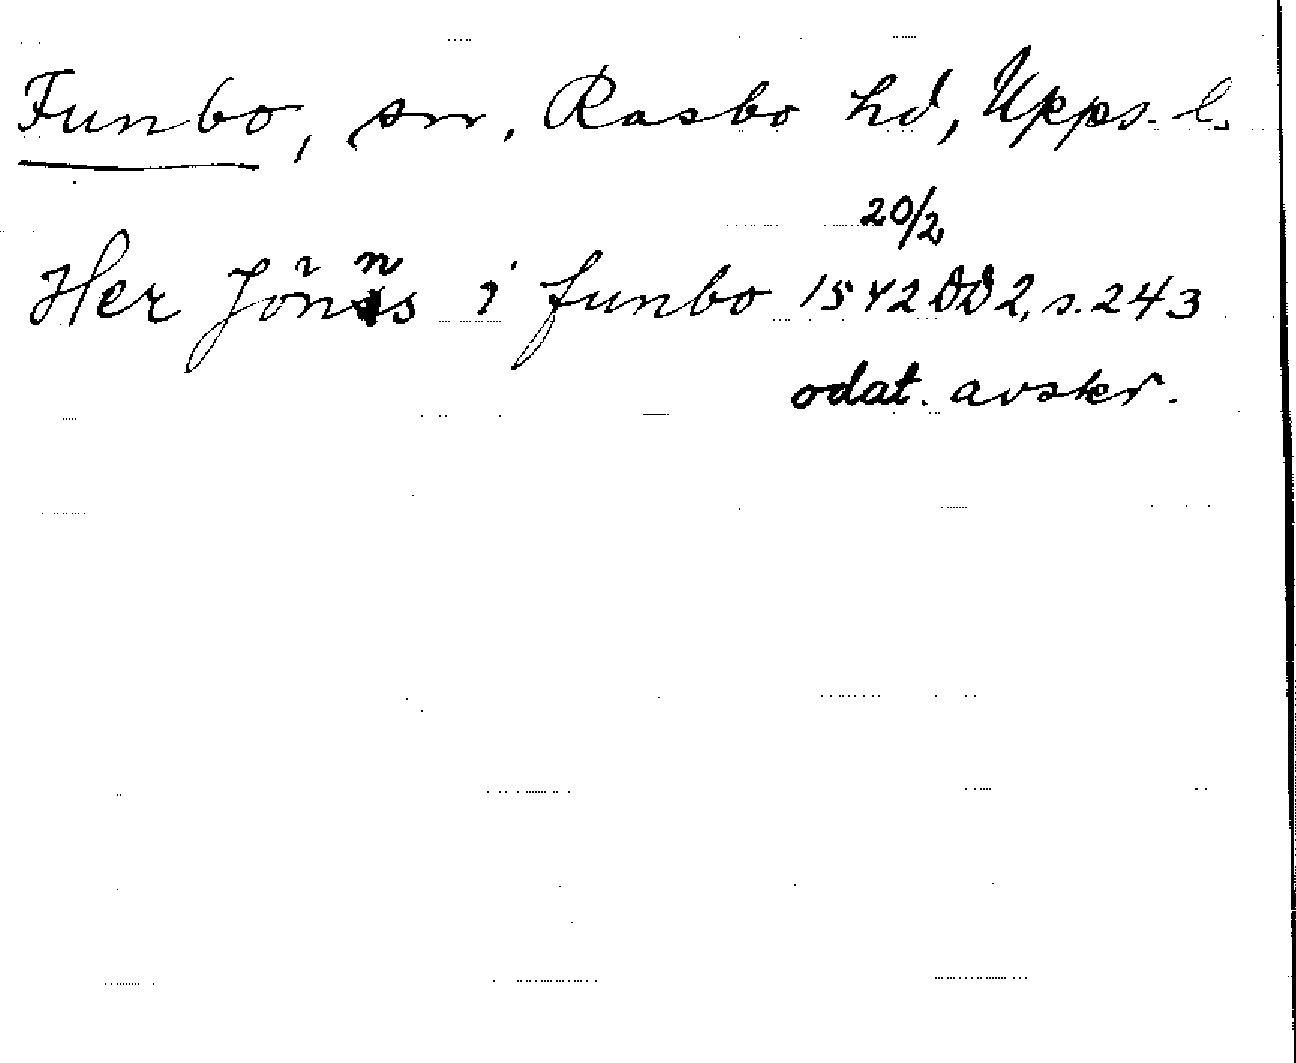 Funbo, sn, Rasbo hd, Upps. l.
20/2
Her Jöns i funbo 1542 DD 2, s. 243
odat. avskr.